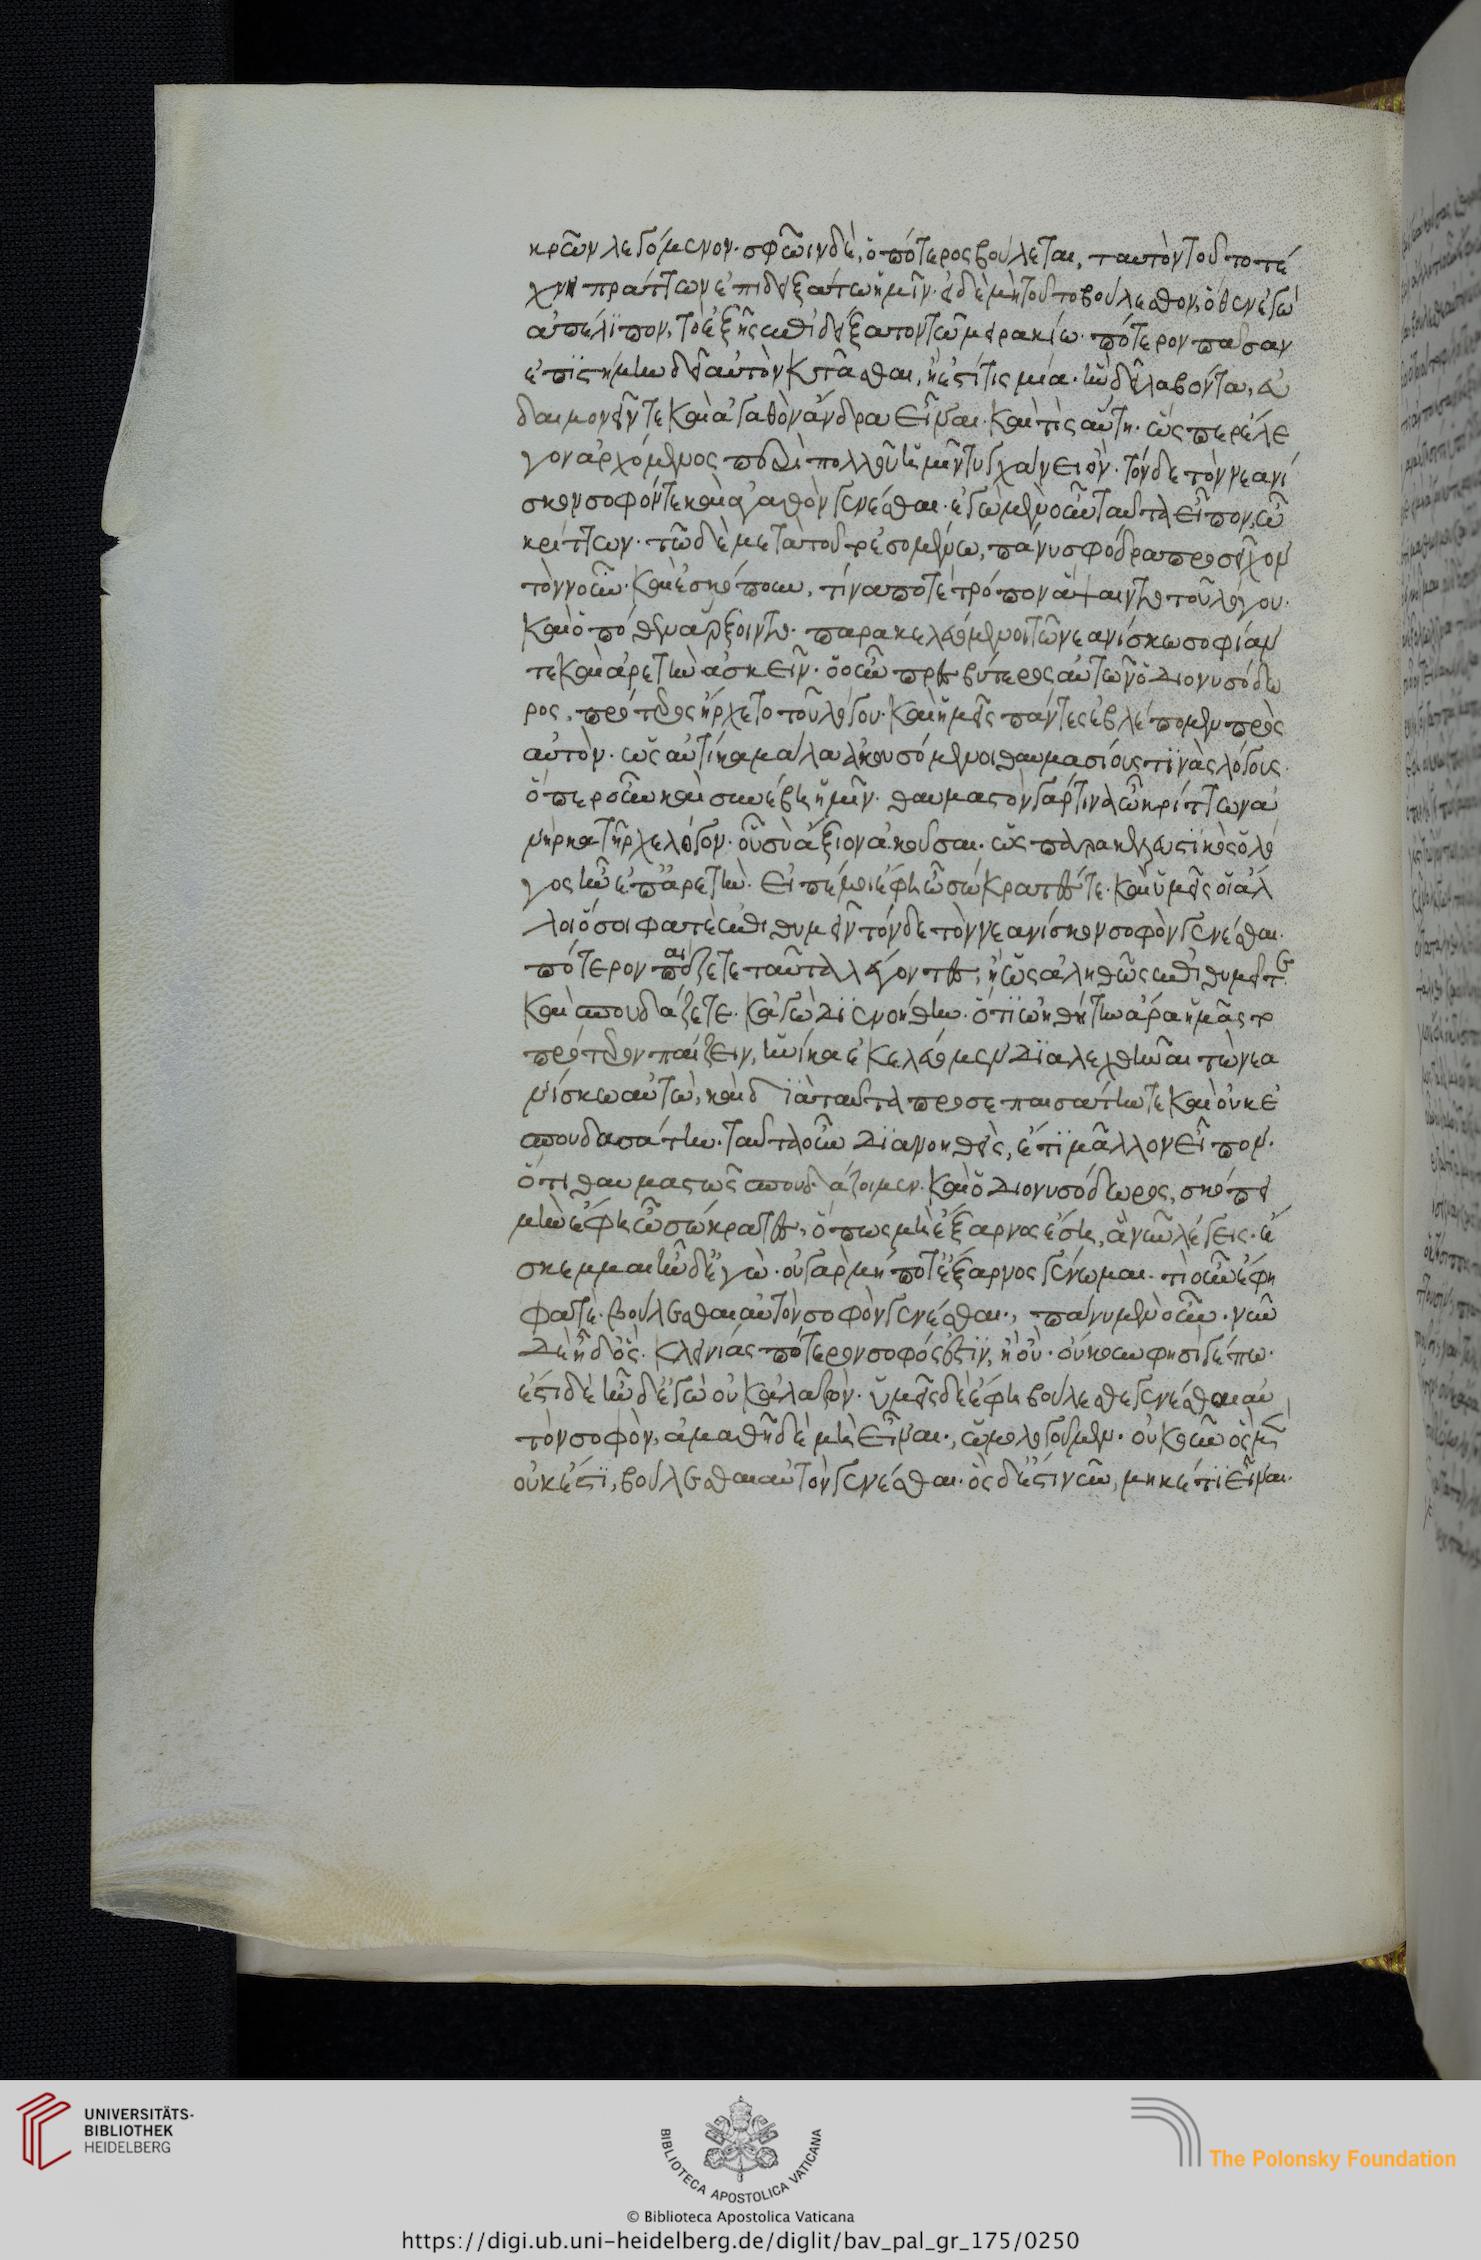 κρῶν λεγόμενον. σφῶιν δὲ, ὁπότερος βούλεται, ταυτὸν τοῦτο τέ
χνη πράττων ἐπιδειξάτω ἡμῖν. εἰ δὲ μὴ τοῦτο βούλεσθον, ὅθεν ἐγὼ
ἀπέλιπον, τὸ ἑξῆς ἐπιδείξατον τῶ μειρακίω. πότερον πᾶσαν
ἐπιστήμην δεῖ αὐτὸν κτᾶσθαι, ἢ ἔστί τις μία. ἣν δεῖ λαβόντα, εὐ
δαιμονεῖν τε καὶ ἀγαθὸν ἄνδρα εἶναι. καὶ τίς αὕτη. ὥσπερ ἔλε
γον ἀρχόμενος περὶ πολλοῦ ἡμῖν τυγχάνει ὄν. τόνδε τὸν νεανί
σκον σοφόν τε καὶ ἀγαθὸν γενέσθαι. ἐγὼ μὲν οὖν ταῦτα εἶπον, ὦ
κρίττων. τῶ δὲ μετὰ τοῦτο ἐσομένω, πάνυ σφόδρα προσεῖχον
τὸν νοῦν. καὶ ἐσκόπουν, τίνα ποτὲ τρόπον ἅψαιντο τοῦ λόγου.
καὶ ὁπόθεν ἄρξοιντο. παρακελευόμενοι τῶ νεανίσκω σοφίαν
τε καὶ ἀρετὴν ἀσκεῖν. ὁ οὖν πρεσβύτερος αὐτῶν ὁ Διονυσόδω
ρος, πρότερος ἤρχετο τοῦ λόγου. καὶ ἡμεῖς πάντες ἐβλέπομεν πρὸς
αὐτὸν. ὡς αὐτίκα μάλα ἀκουσόμενοι θαυμασίους τινὰς λόγους.
ὅπερ οὖν καὶ συνέβη ἡμῖν. θαυμαστὸν γάρ τινα ὦ κρίττων ἀ
νὴρ κατῆρχε λόγον. οὗ σὺ ἄξιον ἀκοῦσαι. ὡς παρακελευστικὸς ὁ λό
γος ἦν ἐπ' ἀρετήν. εἰπέ μοι ἔφη ὦ σώκρατές τε. καὶ ὑμεῖς οἱ ἄλ
λοι ὅσοι φατὲ ἐπιθυμεῖν τόνδε τὸν νεανίσκον σοφὸν γενέσθαι.
πότερον παίζετε ταῦτα λέγοντες, ἢ ὡς ἀληθῶς ἐπιθυμεῖτε
καὶ σπουδάζετε. κἀγὼ Διενοήθην. ὅτι ὠηθήτην ἄρα ἡμᾶς τ
πρότερον παίζειν, ἡνίκα ἐκελεύομεν Διαλεχθῆναι τῶ νεα
νίσκω αὐτώ, καὶ διὰ ταῦτα προσεπαισάτην τε καὶ οὐκ ἐ
σπουδασάτην. ταῦτα οὖν Διανοηθεὶς, ἔτι μᾶλλον εἶπον.
ὅτι θαυμαστῶς σπουδάζοιμεν. καὶ ὁ Διονυσόδωρος, σκόπει
μὴν ἔφη ὦ σώκρατες, ὅπως μὴ ἔξαρνος ἔση, ἃ νῦν λέγεις. ἔ
σκεμμαι ἦν δ' ἐγὼ. οὐ γὰρ μή ποτ' ἔξαρνος γένωμαι. τί οὖν ἔφη
φατέ. βούλεσθαι αὐτὸν σοφὸν γενέσθαι., πάνυ μὲν οὖν. νῦν
Δὲ ἦ δ' ὅς. κλεινίας πότερον σοφός ἐστιν, ἢ οὔ. οὔκουν φησί γέ πω.
ἔστι δὲ ἦν δ' ἐγὼ οὐκ ἀλαζών. ὑμεῖς δὲ ἔφη βούλεσθε γενέσθαι αὐ
τὸν σοφὸν, ἀμαθῆ δὲ μὴ εἶναι., ὡμολογοῦμεν. οὐκοῦν ὃς μὲν
οὐκ ἔστι, βούλεσθαι αὐτὸν γενέσθαι. ὃς δ' ἔστι νῦν, μηκέτι εἶναι.
UNIVERSITÄTS-
BIBLIOTHEK
HEIDELBERG
BIBLIOTECA APOSTOLICA VATICANA
The Polonsky Foundation
© Biblioteca Apostolica Vaticana
https://digi.ub.uni-heidelberg.de/diglit/bav_pal_gr_175/0250